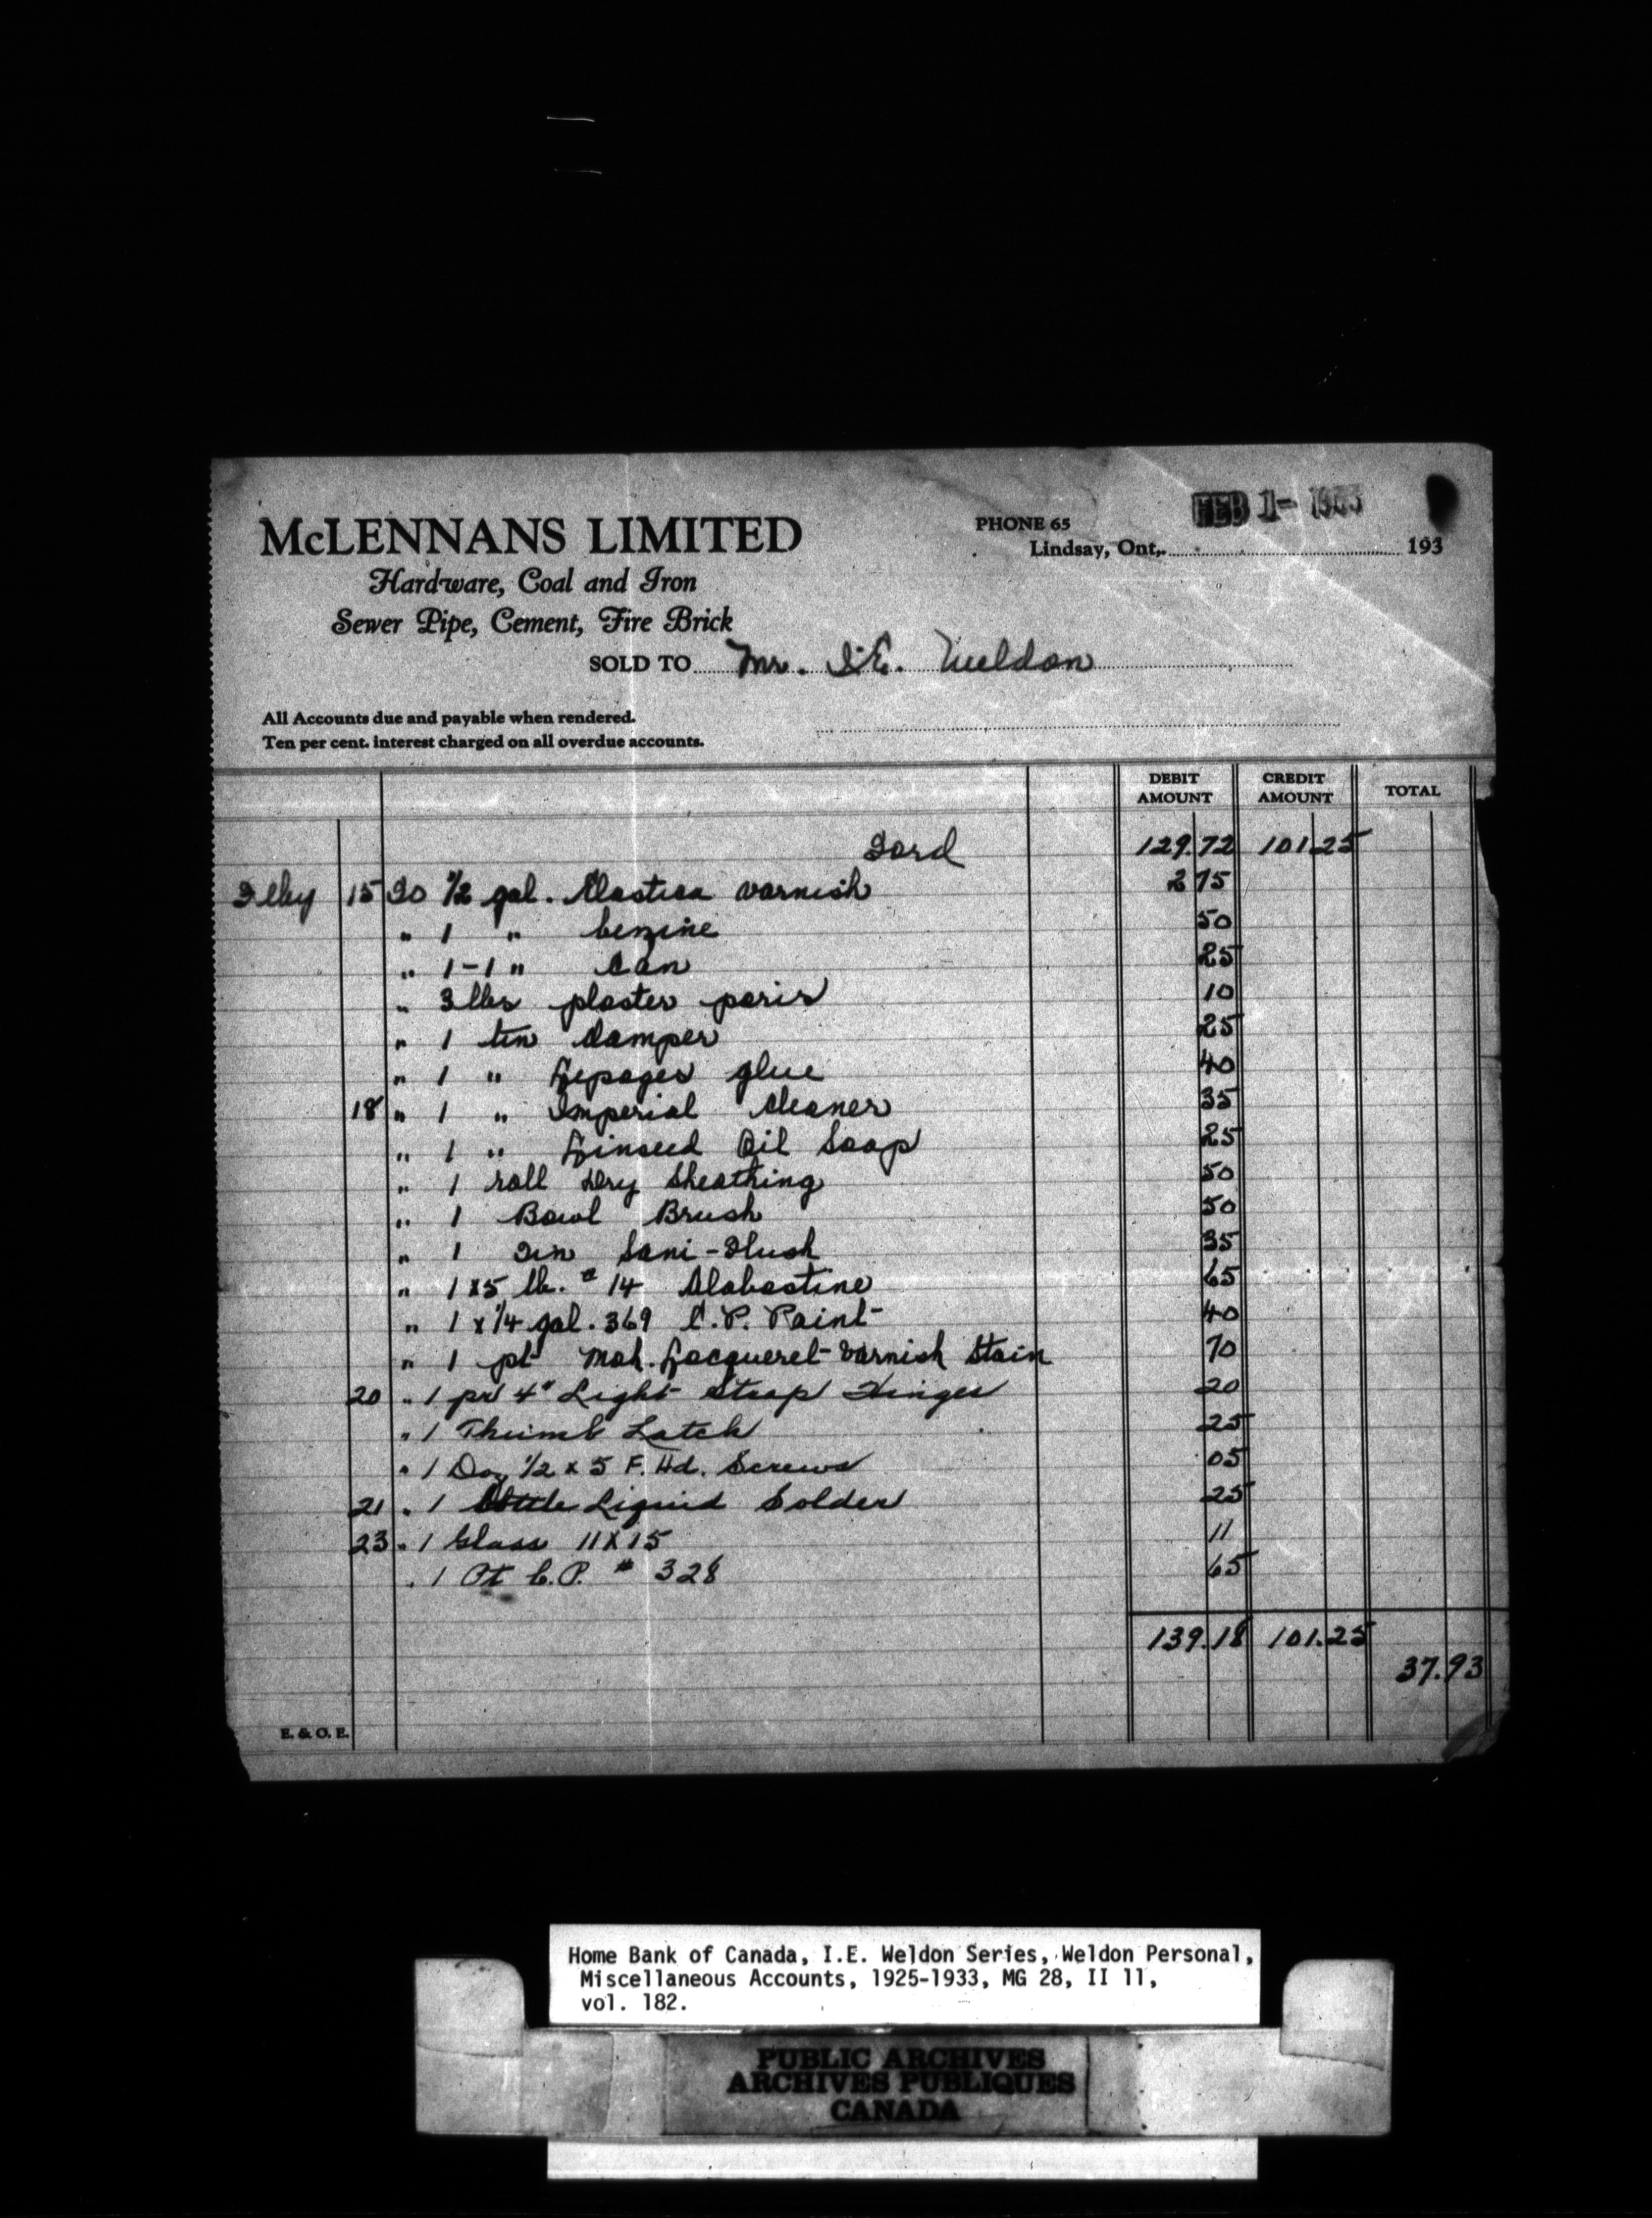 FEB 1- 1933
McLENNANS LIMITED
PHONE 65
Lindsay, Ont,. 193
Hardware, Coal and Iron
Sewer Pipe, Cement, Fire Brick
SOLD TO Mr. I.E. Weldon
All Accounts due and payable when rendered.
Ten per cent. interest charged on all overdue accounts.
DEBIT AMOUNT CREDIT AMOUNT TOTAL
Ford 129.72 101.25
15 To 1/2 gal. Elastica varnish 2 75
" 1 " benzine 50
" 1-1 " Can 25
" 3 lbs plaster paris 10
" 1 tin damper 25
" 1 " Lepages glue 40
18 " 1 " Imperial Cleaner 35
" 1 " Linseed Oil Soap 25
" 1 roll Dry Sheathing 50
" 1 Bowl Brush 50
" 1 Tin Sani-Flush 35
" 1 x 5 lb. # 14 Alabastine 65
" 1 x 1/4 gal. 369 C.P. Paint 40
" 1 pt Mah. Lacqueret Varnish Stain 70
20 " 1 pr 4" Light Strap Hinges 20
" 1 Thumb Latch 25
" 1 Doz 1/2 x 5 F. Hd. Screws 05
21 " 1 Bottle Liquid Solder 25
23 " 1 Glass 11 x 15 11
" 1 Pt C.P. # 328 65
139.18 101.25
37.93
E. & O. E.
Home Bank of Canada, I.E. Weldon Series, Weldon Personal,
Miscellaneous Accounts, 1925-1933, MG 28, II 11,
vol. 182.
PUBLIC ARCHIVES
ARCHIVES PUBLIQUES
CANADA